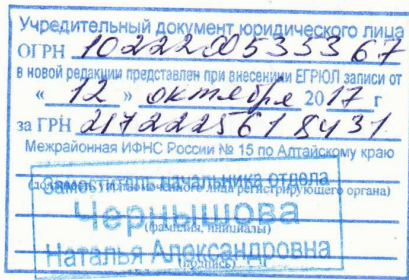 Учредительный документ юридического лица
ОГРН 1022200533367
в новой редакции представлен при внесении ЕГРЮЛ записи от
« 12 » октября 2017 г
за ГРН 2172225618431
Межрайонная ИФНС России № 15 по Алтайскому краю
Заместитель начальника отдела
(должность уполномоченного лица регистрирующего органа)
Чернышова
(фамилия, инициалы)
Наталья Александровна
(подпись)